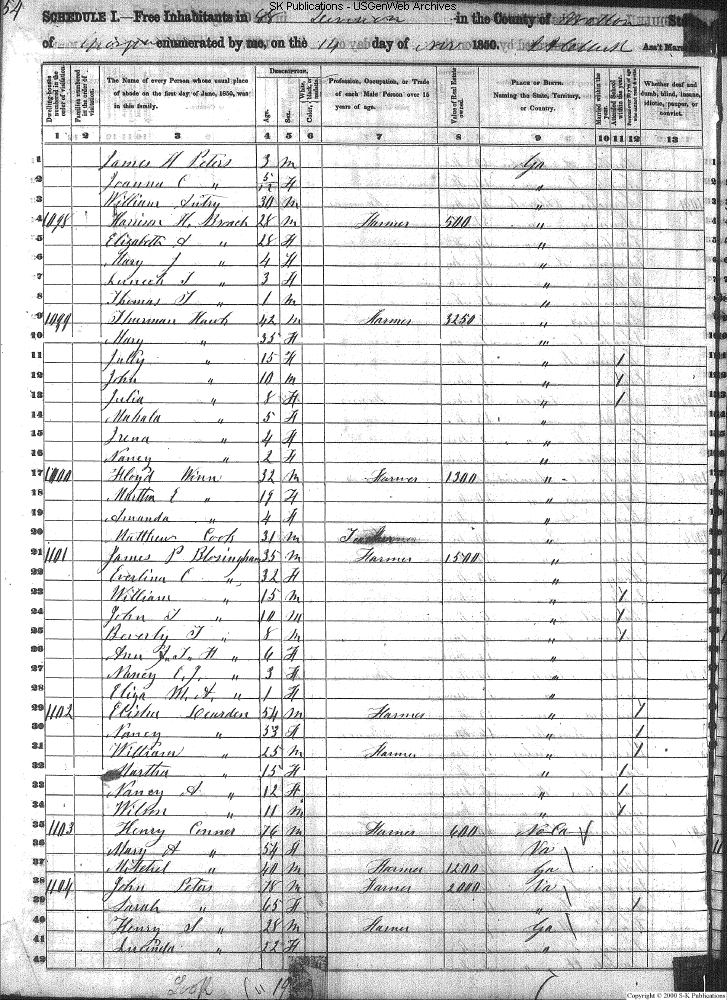 SK Publications - USGenWeb Archives
54
SCHEDULE I.—Free Inhabitants in 68 Division in the County of Walton State
of Georgia enumerated by me, on the 14 day of Nov 1850. Ass't Marshal
Dwelling-houses numbered in the order of visitation. Families numbered in the order of visitation. The Name of every Person whose usual place of abode on the first day of June, 1850, was in this family. Description. Age. Sex. Color, White, black, or mulatto. Profession, Occupation, or Trade of each Male Person over 15 years of age. Value of Real Estate owned. Place of Birth Naming the State, Territory, or Country. Married within the year. Attended School within the year. Whether deaf and dumb, blind, insane, idiotic, pauper, or convict.
1 2 3 4 5 6 7 8 9 10 11 12 13
1 James H Peters 3 M Ga
2 Joanna C " 5/12 F "
3 William Autry 30 M "
4 1098 Harrison H. Broach 28 M Farmer 500 "
5 Elizabeth A " 28 F "
6 Mary J " 4 F "
7 T " 3 F "
8 Thomas T " 1 M "
9 1099 Thurman Hawk 42 M Farmer 3250 "
10 Mary " 35 F "
11 " 15 F " /
12 John " 10 M " /
13 Julia " 8 F " /
14 Mahala " 5 F "
15 Irena " 4 F "
16 Nancy " 2 F "
17 1100 Floyd Winn 32 M Farmer 1300 "
18 Martha E " 19 F "
19 Amanda " 4 F "
20 Matthew Cook 31 M "
21 1101 James P Blosingham 35 M Farmer 1500 "
22 Everlina C " 32 F "
23 William " 15 M " /
24 John T " 10 M " /
25 Beverly T " 8 M " /
26 Ann H " 6 F "
27 Nancy C. J. " 3 F "
28 Eliza M. A. " 1 F "
29 1102 Elisha Dearden 54 M Farmer " /
30 Nancy " 53 F " /
31 William " 25 M Farmer " /
32 Martha " 15 F " /
33 Nancy A " 12 F " /
34 Wilson " 11 M " /
35 1103 Henry Conner 76 M Farmer 600 No Ca
36 Mary A " 54 F Va
37 " 40 M Farmer 1200 Ga
38 1104 John Peters 78 M Farmer 2000 Va
39 Sarah " 65 F " /
40 Henry " 28 M Farmer Ga
41 Lucinda " 22 F "
42
Copyright © 2000 S-K Publications